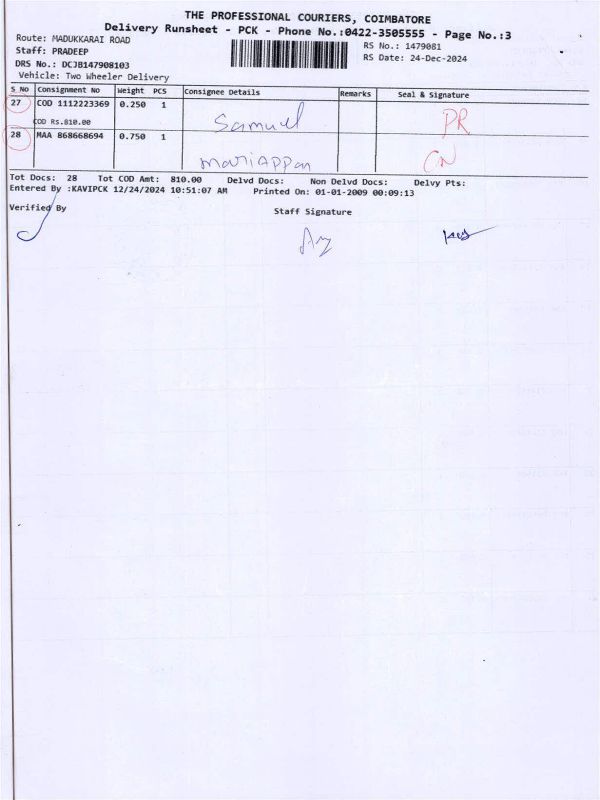 THE PROFESSIONAL COURIERS, COIMBATORE
Delivery Runsheet - PCK - Phone No.:0422-3505555 - Page No.:3
Route: MADUKKARAI ROAD
RS No.: 1479081
Staff: PRADEEP
RS Date: 24-Dec-2024
DRS No.: DCJB147908103
Vehicle: Two Wheeler Delivery
S No Consignment No Weight PCS Consignee Details Remarks Seal & Signature
27 COD 1112223369 0.250 1 Samuel PR
COD RS.810.00
28 MAA 868668694 0.750 1 Mariappan CN
Tot Docs: 28 Tot COD Amt: 810.00 Delvd Docs: Non Delvd Docs: Delvy Pts:
Entered By :KAVIPCK 12/24/2024 10:51:07 AM Printed On: 01-01-2009 00:09:13
Verified By
Staff Signature